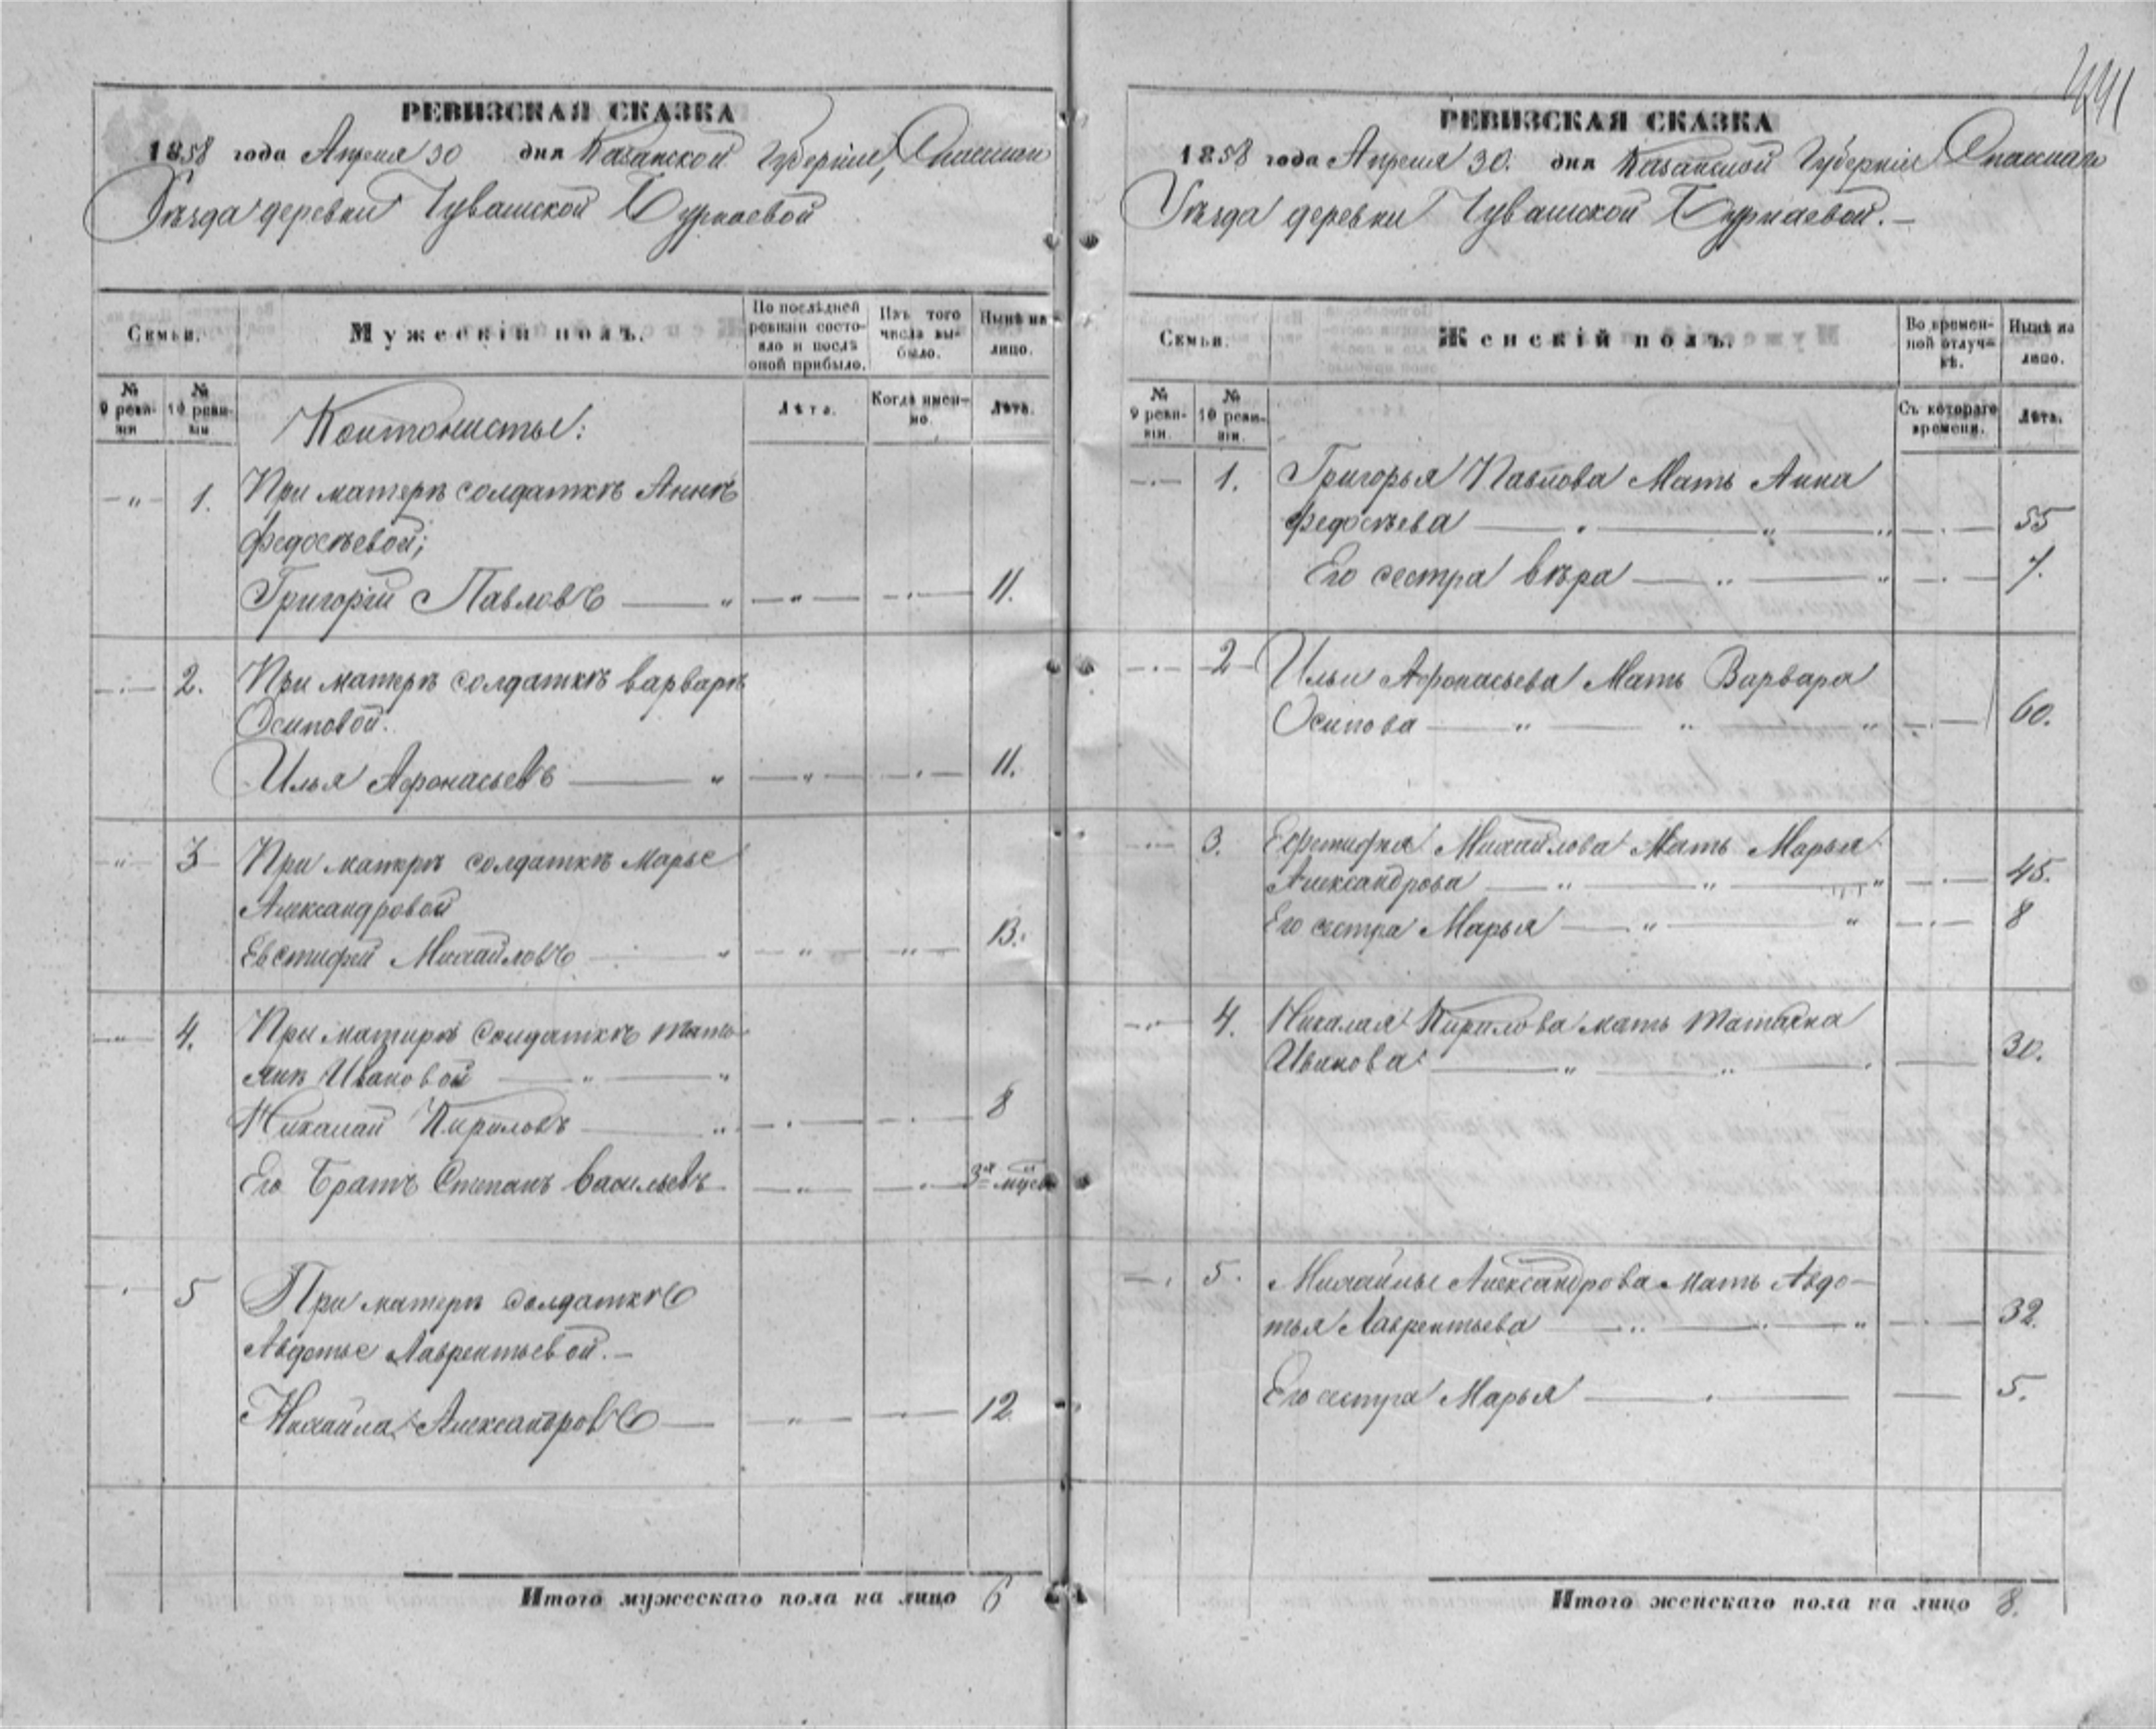 441
РЕВИЗСКАЯ СКАЗКА
1858 года Апреля 30 дня Казанской Губерніи, Спасскаго
Уѣзда деревни Чувашской Бурнаевой
Семьи.
Мужескій полъ.
По послѣдней ревизіи состояло и послѣ оной прибыло.
Изъ того числа выбыло.
Нынѣ на лицо.
№ 9 ревизіи
№ 10 ревизіи
Лѣта.
Когда именно.
Лѣта.
Контонисты:
1. При матерѣ солдаткѣ Аннѣ
Федосѣевой;
Григорій Павловъ 11.
2. При матерѣ солдаткѣ Варварѣ
Осиповой.
Илья Афонасьевъ 11.
3 При матерѣ солдаткѣ Марье
Александровой
Евстифей Михайловъ 13.
4. При матирѣ солдаткѣ Тать-
янѣ Ивановой
Николай Кириловъ 8
Его Братъ Степанъ Васильевъ 3х мѣся
5 При матерѣ солдаткѣ
Авдотье Лаврентьевой.
Михайла Александровъ 12.
Итого мужескаго пола на лицо 6
РЕВИЗСКАЯ СКАЗКА
1858 года Апреля 30. дня Казанской Губерніи Спасскаго
Уѣзда деревни Чувашской Бурнаевой.
Семьи.
Женскій полъ.
Во временной отлучкѣ.
Нынѣ на лицо.
№ 9 ревизіи.
№ 10 ревизіи.
Съ котораго времени.
Лѣта.
1. Григорья Павлова Мать Анна
Федосѣева 55
Его сестра Вѣра 7.
2 Ильи Афонасьева Мать Варвара
Осипова 60.
3. Михайлова Мать Марья
Александрова 45.
Его сестра Марья 8
4. Николая Кирилова мать Татьяна
Иванова 30.
5. Михайлы Александрова мать Авдо-
тья Лаврентьева 32.
Его сестра Марья 5.
Итого женскаго пола на лицо 8.